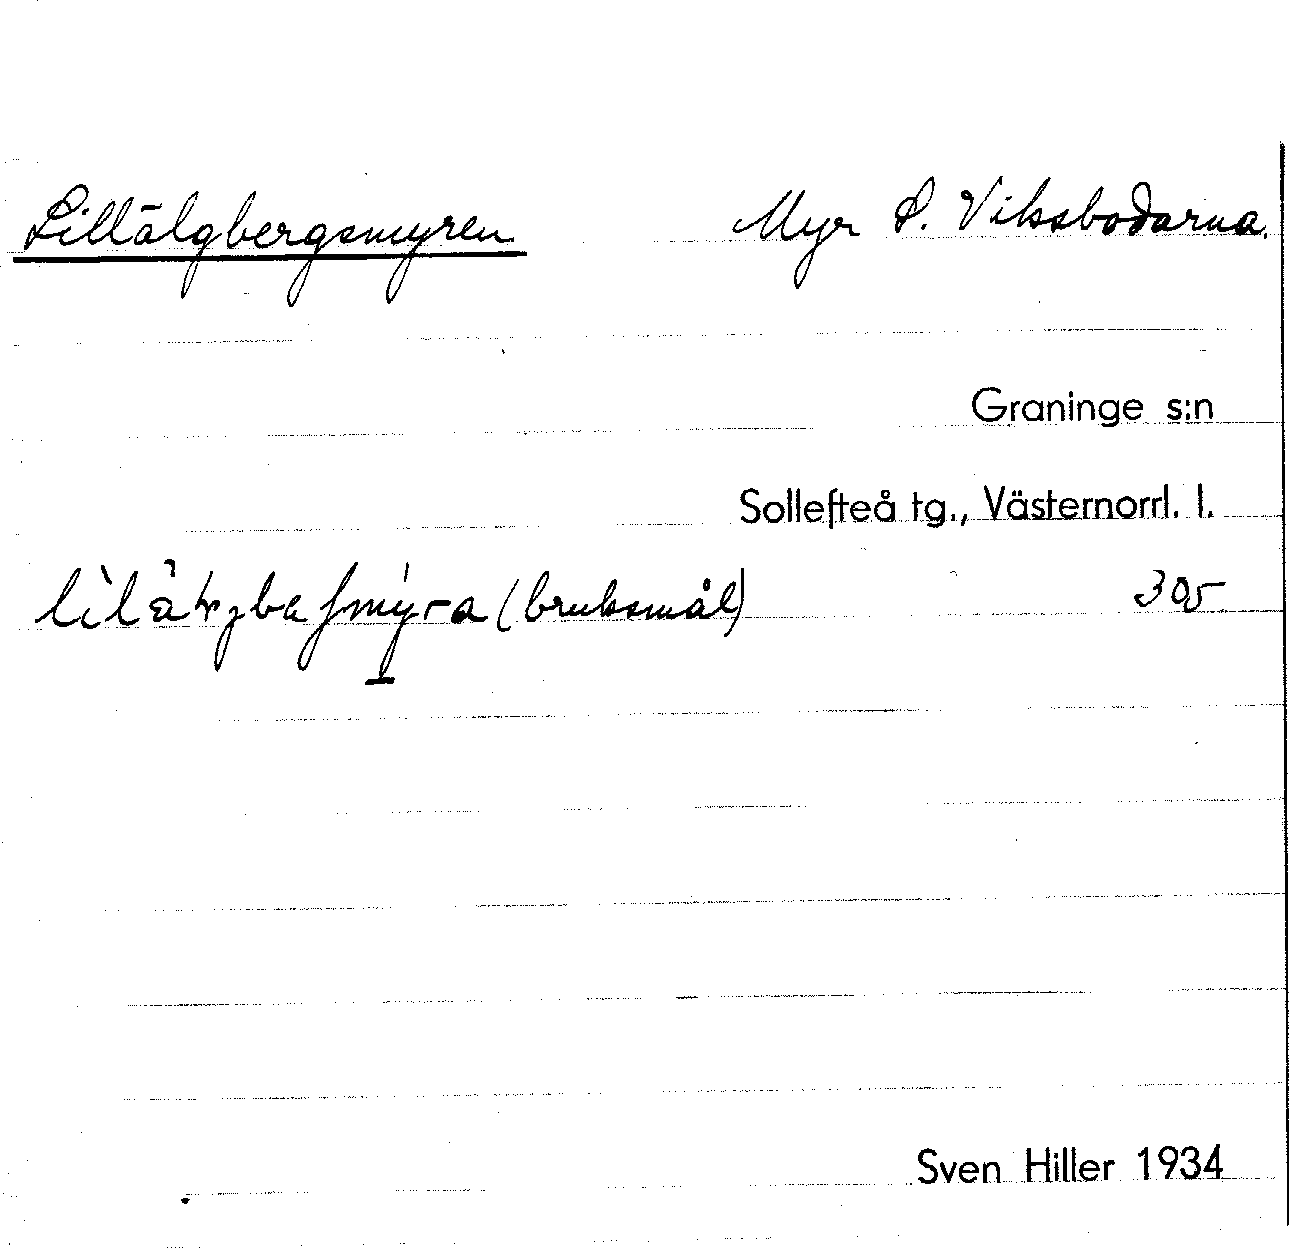 Lillälgbergsmyren Myr S. Viksbodarna.
Graninge s:n
Sollefteå tg., Västernorrl. l.
(bruksmål) 305
Sven Hiller 1934